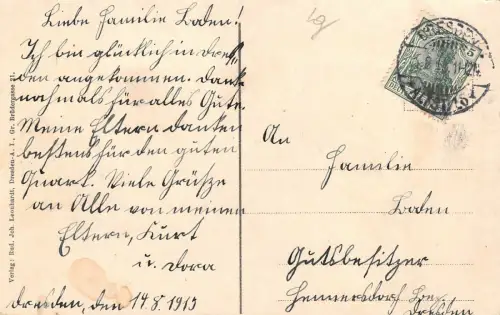 Liebe Familie Boden!
Ich bin glücklich in Dres=
den angekommen. Danke
nochmals für alles Gute.
Meine Eltern danken
bestens für den guten
Quark. Viele Grüsze
an Alle von meinen
Eltern, Kurt
u. Dora
Dresden, den 14.8.1913
An
Familie
Boden
Gutsbesitzer
Hennersdorf
Dresden
Verlag: Rud. Joh. Leonhardt, Dresden-A. 1., Gr. Brüdergasse 21.